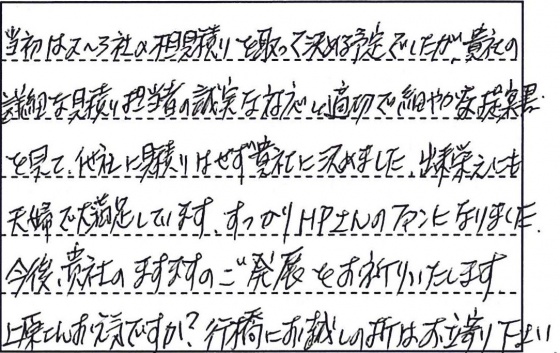 当初は2〜3社の相見積りを取って決める予定でしたが、貴社の
詳細な見積り、担当者の誠実な対応と適切で細やかな提案書
を見て、他社に見積りはせず貴社に決めました。出来栄えにも
夫婦で大満足しています。すっかりHPさんのファンになりました。
今後、貴社のますますのご発展をお祈りいたします
上原さんお元気ですか?行橋にお越しの折はお立寄り下さい